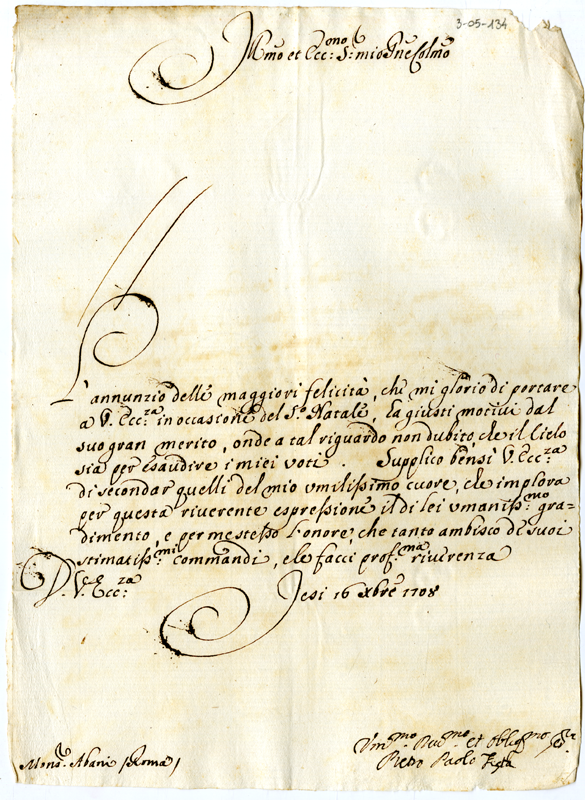 3-05-134
Jll.mo et Ecc: S: mio Pne Colmo
L'annunzio delle maggiori felicità, che mi glorio di portare
a V. Ecc:za in occasione del S.o Natale, ha giusti motivi dal
suo gran merito, onde a tal riguardo non dubito, che il Cielo
sia per esaudire i miei voti. Supplico bensì V. Ecc:za
di secondar quelli del mio umilissimo cuore, che implora
per questa riverente espressione il di lei umaniss:mo gra-
dimento, e per me stesso l'onore, che tanto ambisco de suoi
stimatiss:mi commandi, e le facci prof:ma riverenza
D. V. Ecc:za
Jesi 16 Xbre 1708
Mons.r Abani (Roma)
Um:mo Deu:mo et Oblig:mo
Pietro Paolo